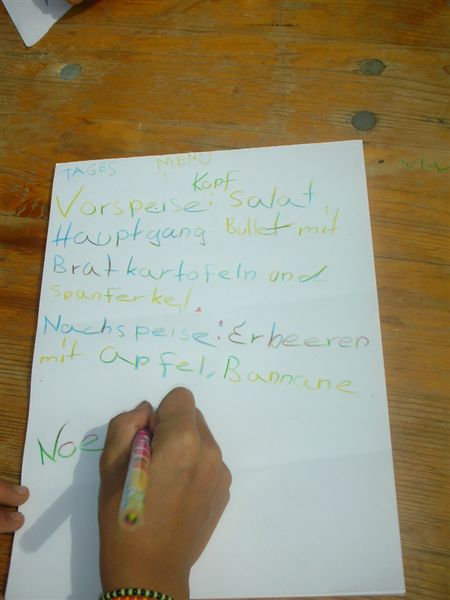 TAGES MENÜ
Kopf
Vorspeise: Salat
Hauptgang Bullet mit
Bratkartofeln und
spanferkel.
Nachspeise: Erbeeren
mit apfel, Bannane
Noe